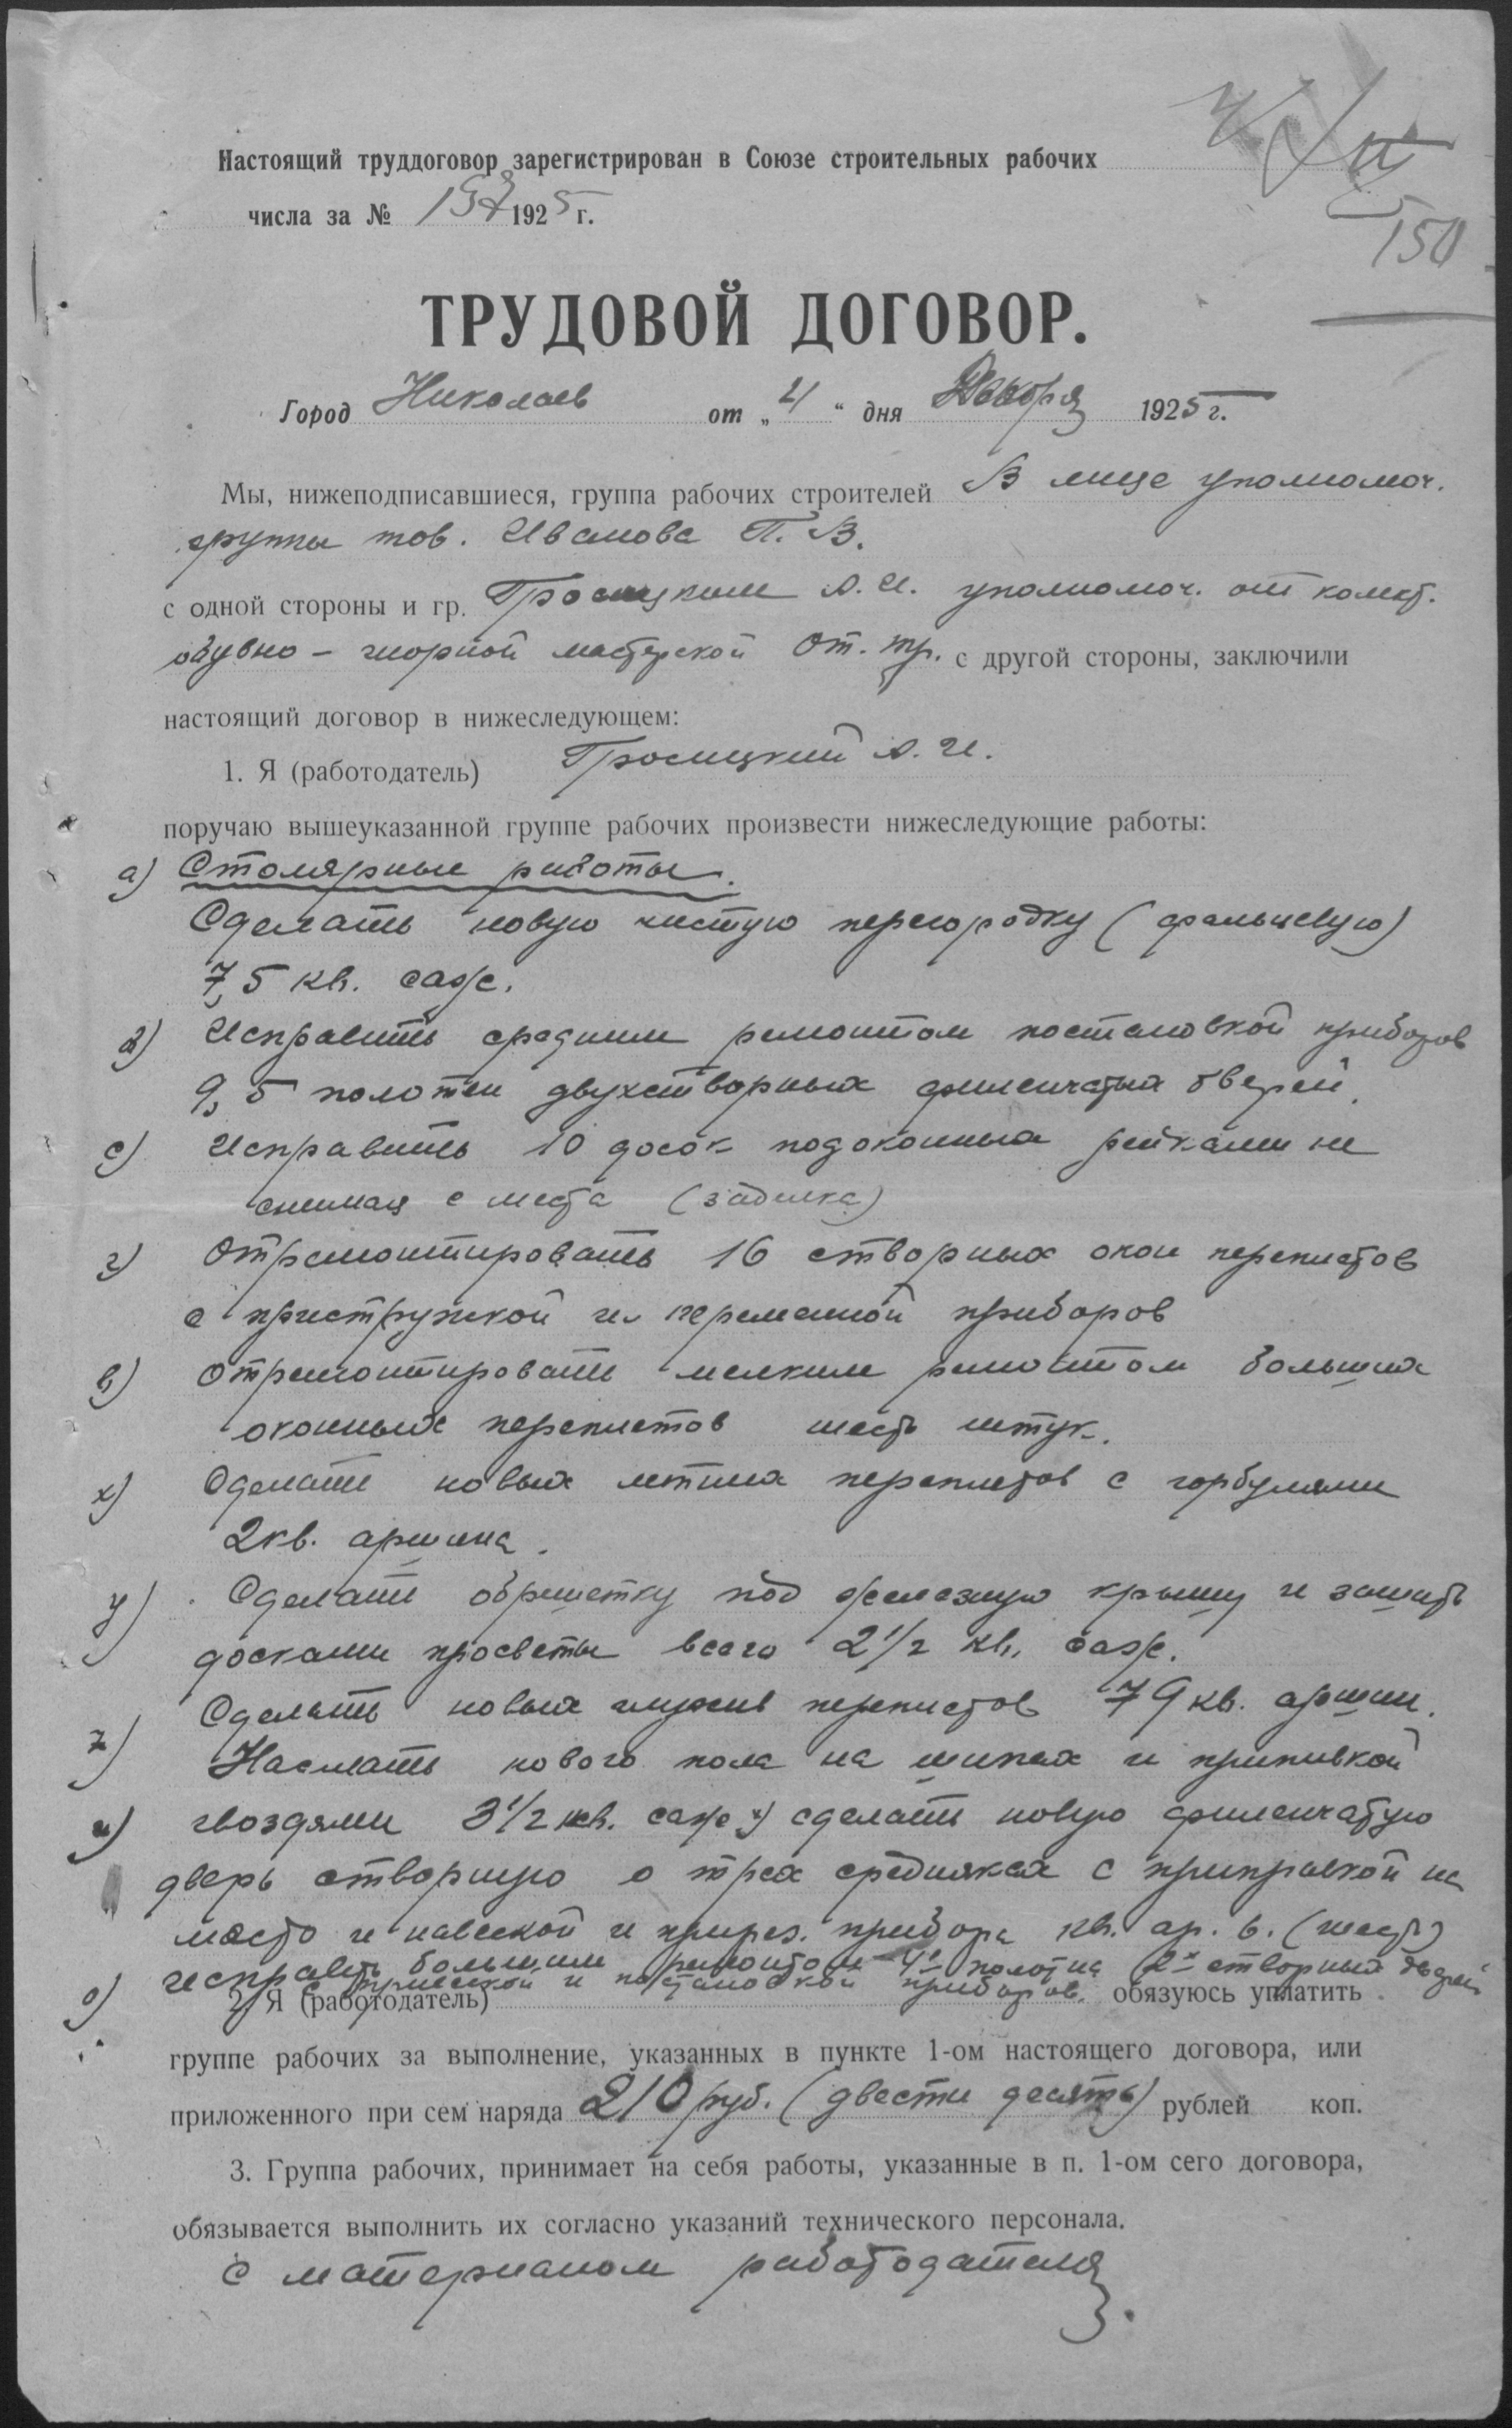 Настоящий труддоговор зарегистрирован в Союзе строительных рабочих
150
числа за № 1925 г.
ТРУДОВОЙ ДОГОВОР.
Город Николаев от „ 21 “ дня Декабря 1925 г.
Мы, нижеподписавшиеся, группа рабочих строителей В лице уполномоч.
группы тов. Иванова П. В.
с одной стороны и гр. А. И. уполномоч. от колект.
обувно – шорной мастерской От. тр. с другой стороны, заключили
настоящий договор в нижеследующем:
1. Я (работодатель) А. И.
поручаю вышеуказанной группе рабочих произвести нижеследующие работы:
а) Столярные работы.
Сделать новую чистую перегородку (фальцевую)
7,5 кв. саж.
Исправить средним ремонтом постановкой приборов
9,5 полотен двухстворных филенчатых дверей.
с) Исправить 10 досок подоконных рейками не
снимая с места (заделка)
г) Отремонтировать 16 створных окон переплетов
с пристружкой и переменной приборов
в) Отремонтировать мелким ремонтом больших
оконных переплетов шесть штук.
х) Сделать новых летних переплетов с горбулями
2 кв. аршина.
у) Сделать обрешетку под железную крышу и зашить
досками просветы всего 2 1/2 кв. саж.
Сделать новых глухих переплетов 79 кв. аршин.
z) Наслать нового пола на шипах и пришивкой
и) гвоздями 3 1/2 кв. саж сделать новую филенчатую
дверь створную о трех средниках с приправкой на
место и навеской и прирез. прибора кв. ар. 6. (шесть)
о) исправить большим ремонтом 4 полотна 2х створных дверей
с привеской и постановкой приборов.
2. Я (работодатель) обязуюсь уплатить
группе рабочих за выполнение, указанных в пункте 1-ом настоящего договора, или
приложенного при сем наряда 210 руб. (двести десять) рублей коп.
3. Группа рабочих, принимает на себя работы, указанные в п. 1-ом сего договора,
обязывается выполнить их согласно указаний технического персонала.
с материалом работодателя.